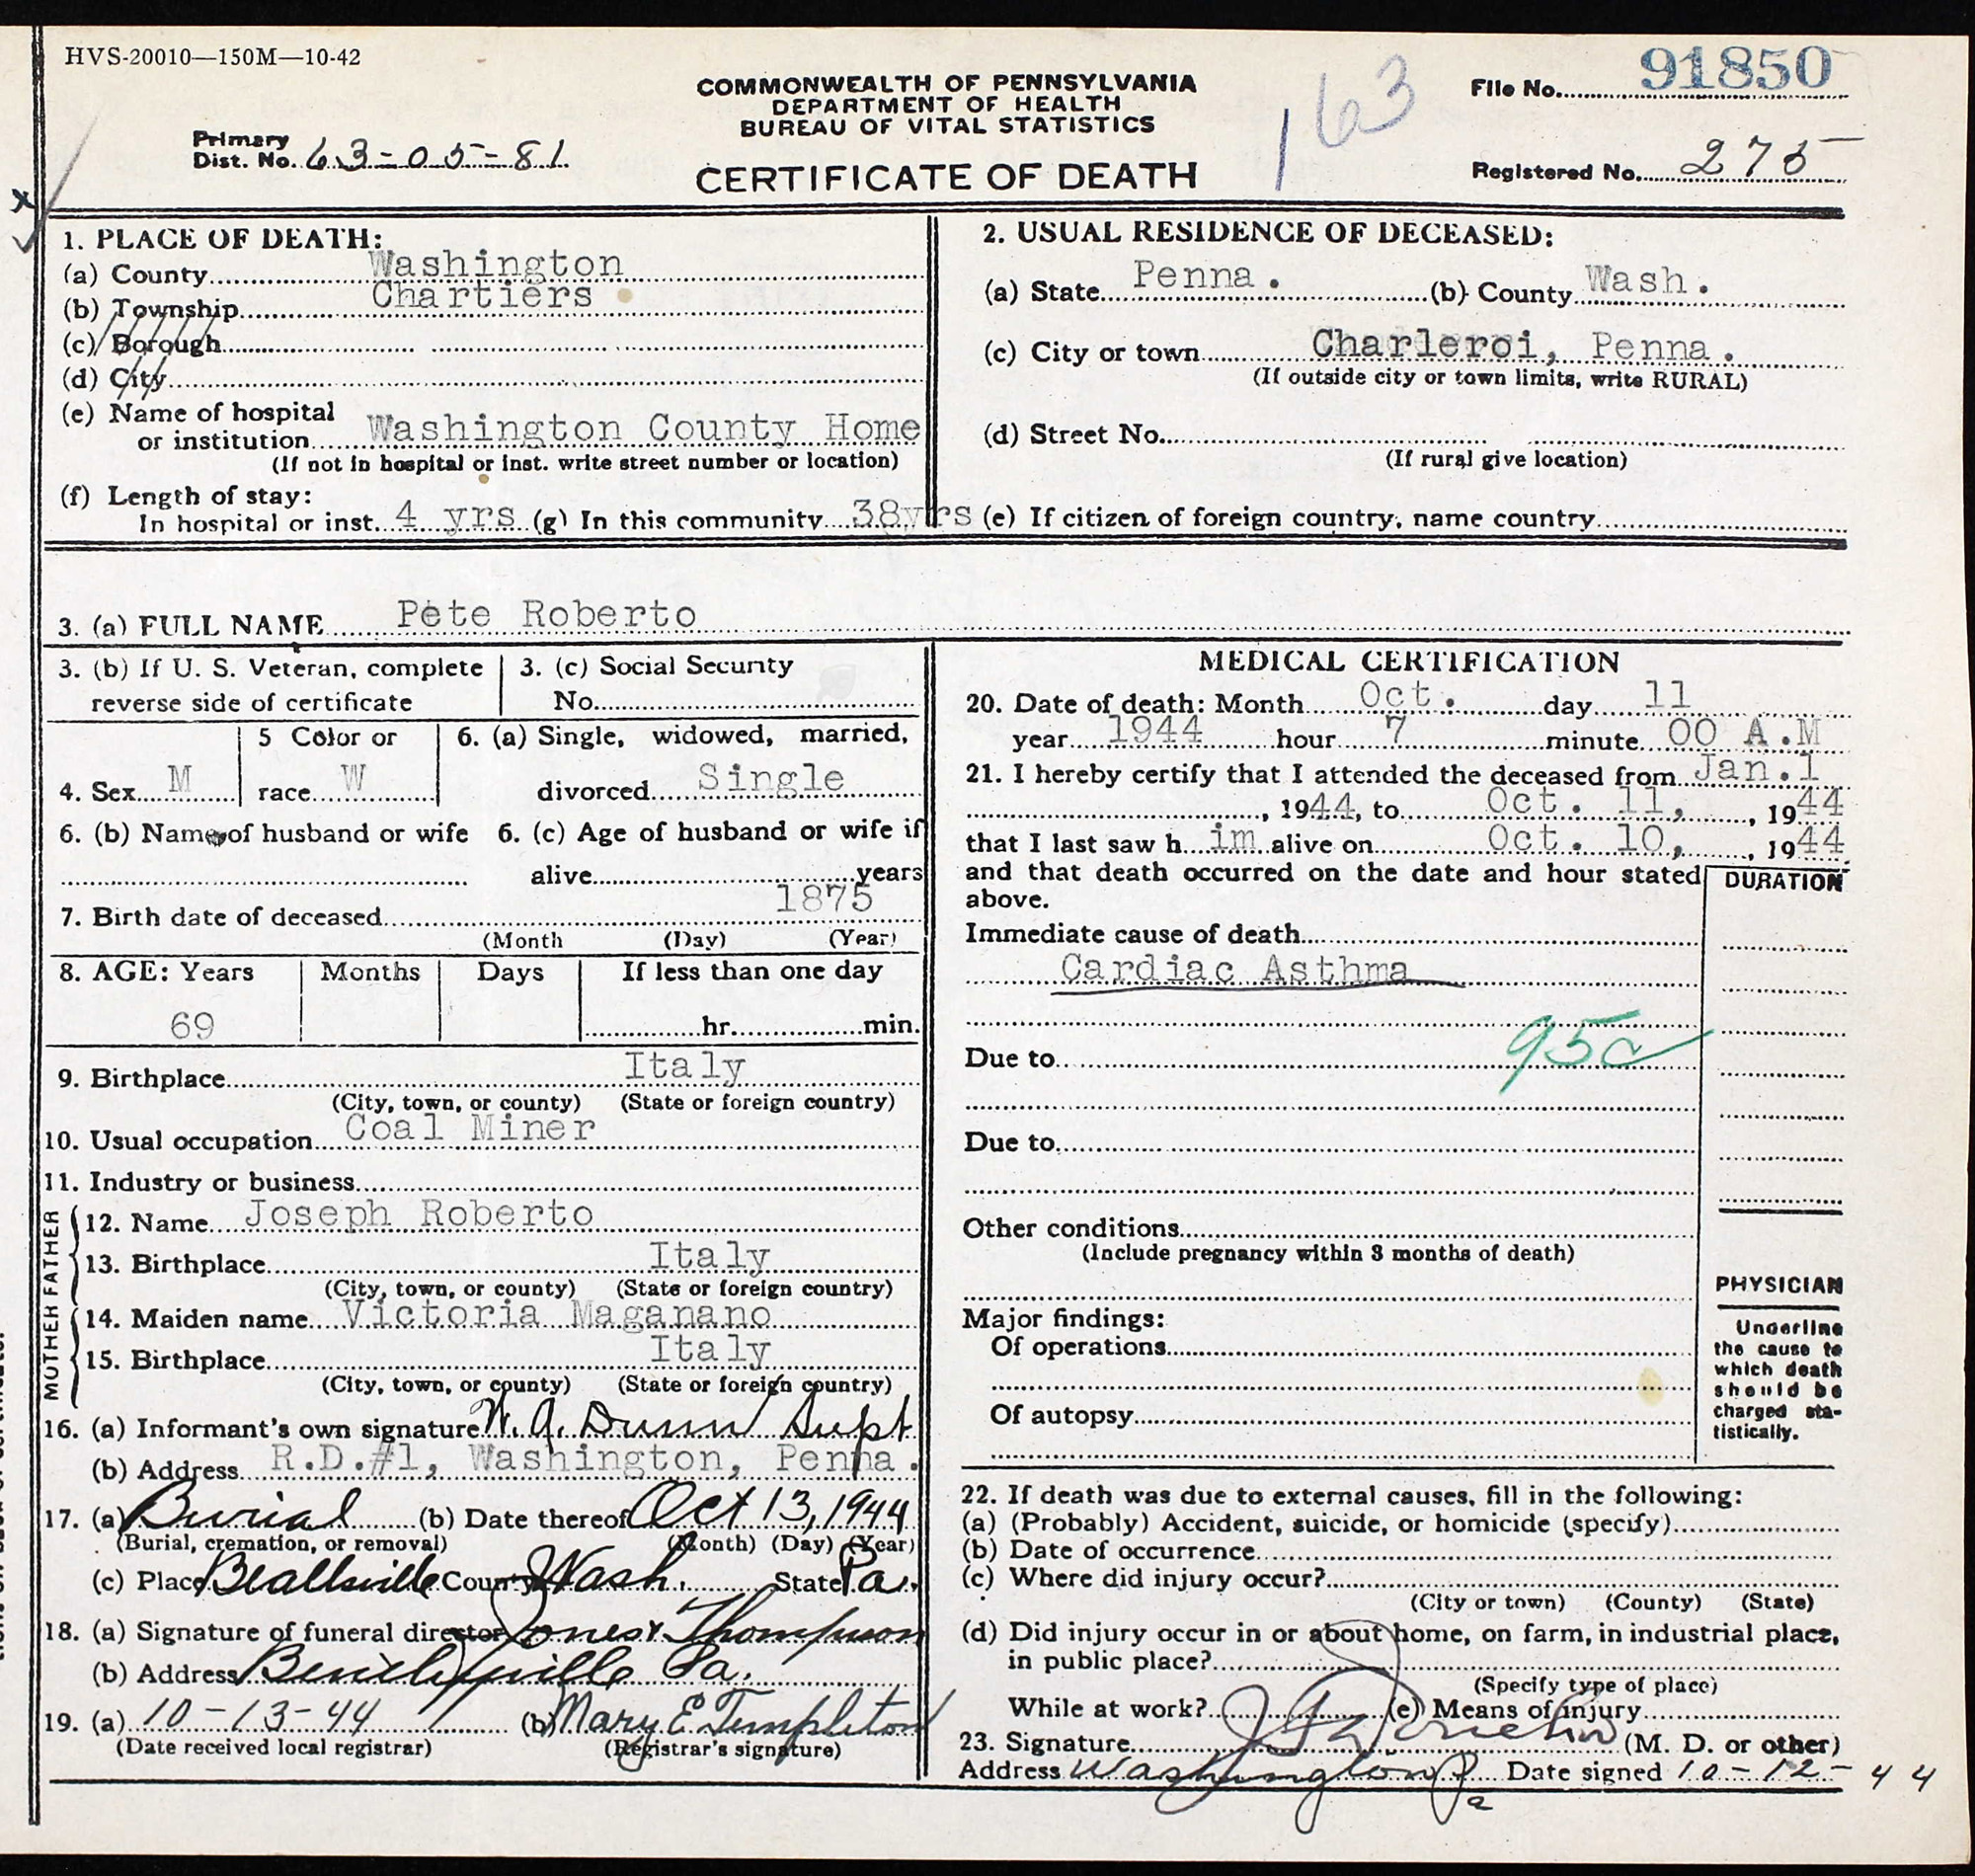 HVS-20010—150M—10-42
COMMONWEALTH OF PENNSYLVANIA
DEPARTMENT OF HEALTH
BUREAU OF VITAL STATISTICS
CERTIFICATE OF DEATH
163
File No. 91850
Primary
Dist. No. 63-05-81
Registered No. 275
1. PLACE OF DEATH:
(a) County Washington
(b) Township Chartiers
(c) Borough
(d) City
(e) Name of hospital
or institution Washington County Home
(If not in hospital or inst. write street number or location)
(f) Length of stay:
In hospital or inst. 4 yrs (g) In this community 38yrs
2. USUAL RESIDENCE OF DECEASED:
(a) State Penna. (b) County Wash.
(c) City or town Charleroi, Penna.
(If outside city or town limits, write RURAL)
(d) Street No.
(If rural give location)
(e) If citizen of foreign country, name country
3. (a) FULL NAME Pete Roberto
3. (b) If U. S. Veteran, complete
reverse side of certificate
3. (c) Social Security
No.
4. Sex M
5 Color or
race W
6. (a) Single, widowed, married,
divorced Single
6. (b) Name of husband or wife
6. (c) Age of husband or wife if
alive years
7. Birth date of deceased 1875
(Month (Day) (Year)
8. AGE: Years Months Days If less than one day
69 hr. min.
9. Birthplace Italy
(City, town, or county) (State or foreign country)
10. Usual occupation Coal Miner
11. Industry or business
FATHER
12. Name Joseph Roberto
13. Birthplace Italy
(City, town, or county) (State or foreign country)
MOTHER
14. Maiden name Victoria Maganano
15. Birthplace Italy
(City, town, or county) (State or foreign country)
16. (a) Informant's own signature W. A. Dunn Supt
(b) Address R.D.#1, Washington, Penna.
17. (a) Burial (b) Date thereof Oct 13, 1944
(Burial, cremation, or removal) (Month) (Day) (Year)
(c) Place Beallsville County Wash. State Pa.
18. (a) Signature of funeral director Jones & Thompson
(b) Address Bentleyville Pa.
19. (a) 10-13-44 (b) Mary E Templeton
(Date received local registrar) (Registrar's signature)
MEDICAL CERTIFICATION
20. Date of death: Month Oct. day 11
year 1944 hour 7 minute 00 A.M
21. I hereby certify that I attended the deceased from Jan.1
, 1944, to Oct. 11, , 1944
that I last saw h im alive on Oct. 10, , 1944
and that death occurred on the date and hour stated
above.
DURATION
Immediate cause of death
Cardiac Asthma
95c
Due to
Due to
Other conditions
(Include pregnancy within 3 months of death)
Major findings:
Of operations
Of autopsy
PHYSICIAN
Underline
the cause to
which death
should be
charged sta-
tistically.
22. If death was due to external causes, fill in the following:
(a) (Probably) Accident, suicide, or homicide (specify)
(b) Date of occurrence
(c) Where did injury occur?
(City or town) (County) (State)
(d) Did injury occur in or about home, on farm, in industrial place,
in public place?
(Specify type of place)
While at work? (e) Means of injury
23. Signature (M. D. or other)
Address Washington Pa Date signed 10-12-44